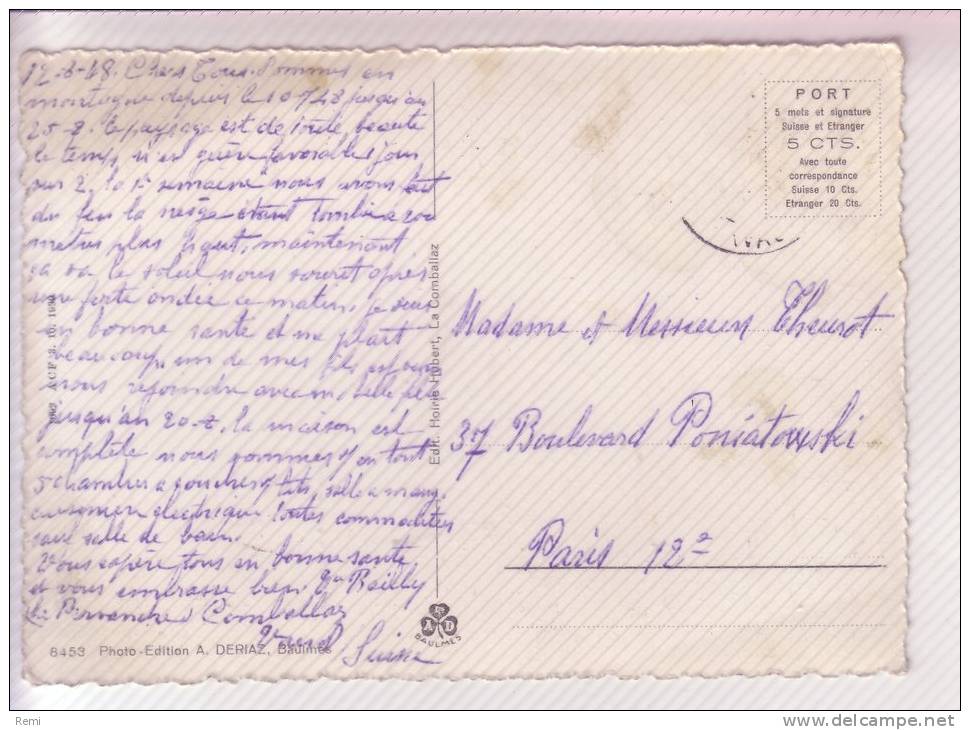 12-8-48. Chers Tous. Sommes en
montagne depuis le 10/7/48 jusqu'au
25-8. le paysage est de toute beauté
le temps n'est guère favorable 1 jour
sur 2. la 1e semaine nous avons fait
du feu la neige étant tombée a 200
mètres plus haut, maintenant
ça va le soleil nous sourit après
une forte ondée ce matin. je suis
en bonne santé et me plait
beaucoup, un de mes fils est venu
nous rejoindre avec
jusqu'au 20-8, la maison est
complète nous sommes en tout
5 chambres a coucher lits, salle a mang.
cuisinière électrique toutes commodités
sauf salle de bain.
Vous espère tous en bonne santé
et vous embrasse bien. Bailly
Pervenche Comballaz
Vaud
Suisse
8453 Photo-Edition A. DERIAZ, Baulmes
Edit. Hoirie Hubert, La Comballaz
A D
BAULMES
PORT
5 mots et signature
Suisse et Etranger
5 CTS.
Avec toute
correspondance
Suisse 10 Cts.
Etranger 20 Cts.
Madame et Messieurs Theurot
37 Boulevard Poniatowski
Paris 12e
Remi
delcampe.net